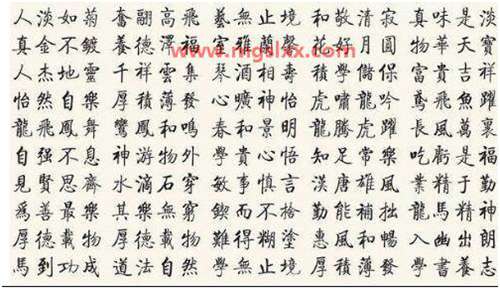 人淡如菊 奮翩高飛 藝無止境 和敬清寂 真味是淡
真金不鍍 養德 室雅蘭馨 花好月圓 物華天寶
人杰地靈 千祥雲集 琴酒 壽 積學儲 富貴吉祥
怡然自樂 厚積薄發 心曠神怡 虎嘯龍吟 鳶飛魚躍
龍飛鳳舞 鸞鳳和鳴 春和景明 龍騰虎躍 長風萬裏
自强不息 神游物外 學貴心悟 知足常樂 吃虧是福
見賢思齊 水滴石穿 敏事慎言 漢唐雄風 業精于勤
爲善最樂 其樂無窮 鍥而不捨 勤能補拙 龍馬精神
厚德載物 厚德載物 難得糊塗 惠風和暢 入幽出朗
馬到功成 道法自然 學無止境 厚積薄發 學書養志